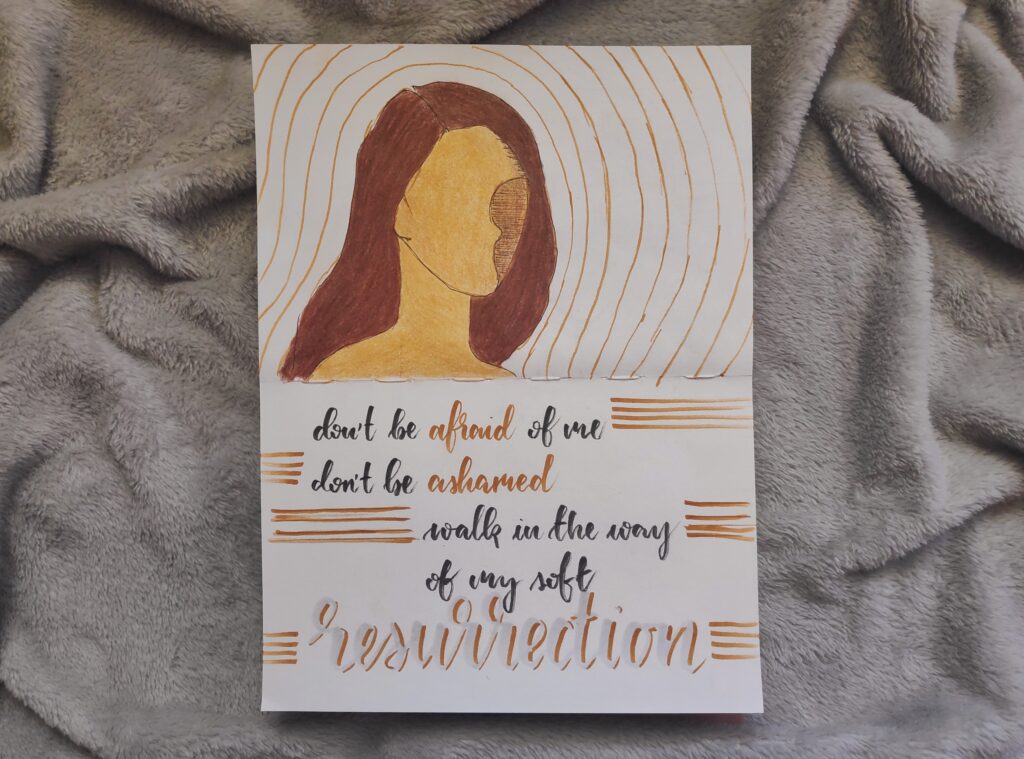 don't be afraid of me
don't be ashamed
walk in the way
of my soft
resurrection